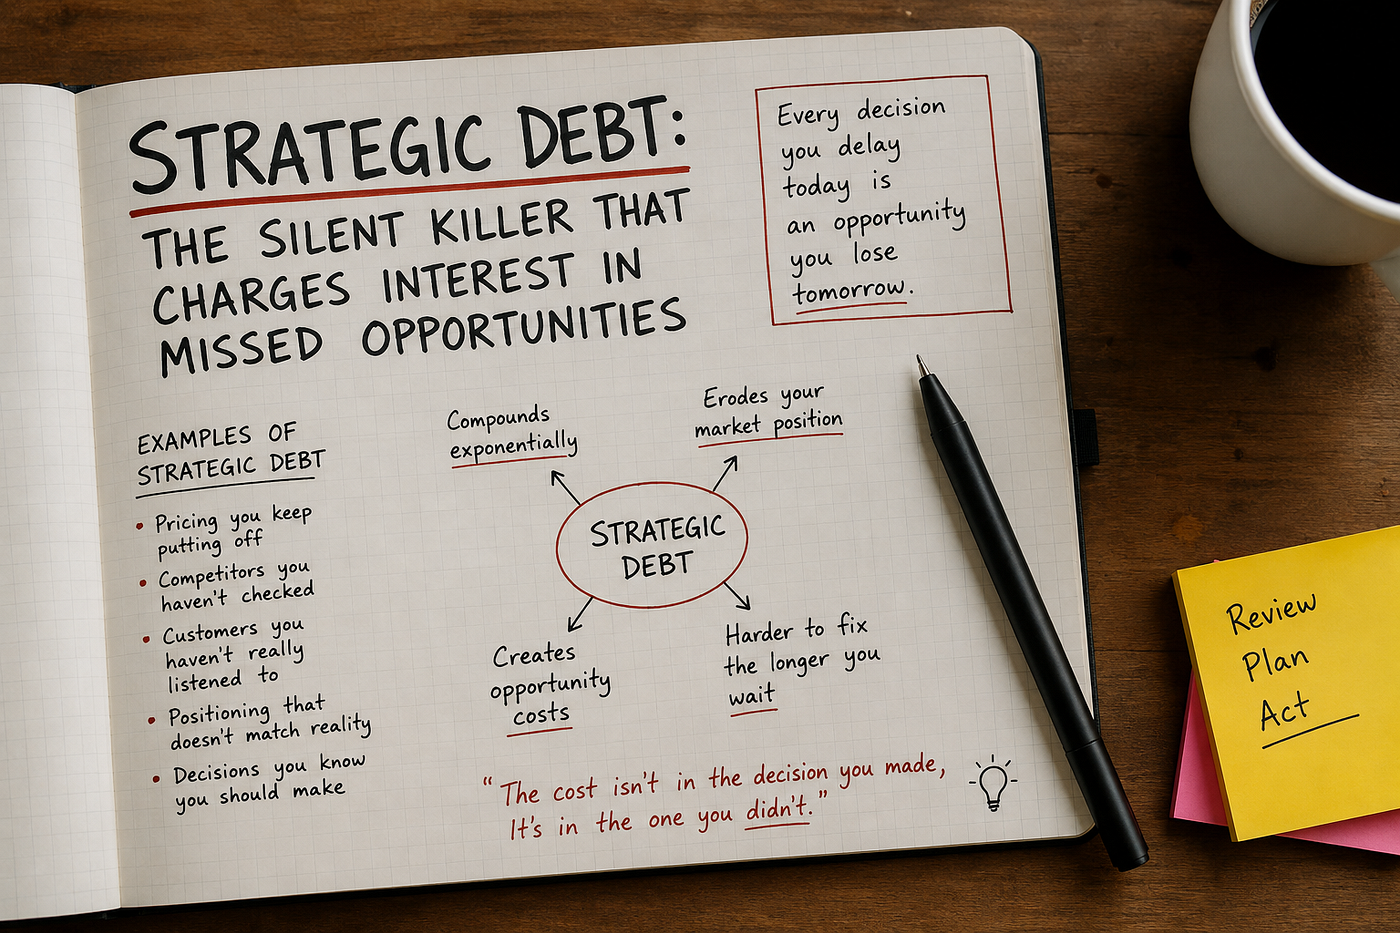 STRATEGIC DEBT:
THE SILENT KILLER THAT
CHARGES INTEREST IN
MISSED OPPORTUNITIES
Every decision
you delay
today is
an opportunity
you lose
tomorrow.
EXAMPLES OF
STRATEGIC DEBT
• Pricing you keep
putting off
• Competitors you
haven't checked
• Customers you
haven't really
listened to
• Positioning that
doesn't match reality
• Decisions you know
you should make
Compounds
exponentially
Erodes your
market position
STRATEGIC
DEBT
Creates
opportunity
costs
Harder to fix
the longer you
wait
"The cost isn't in the decision you made,
It's in the one you didn't."
Review
Plan
Act